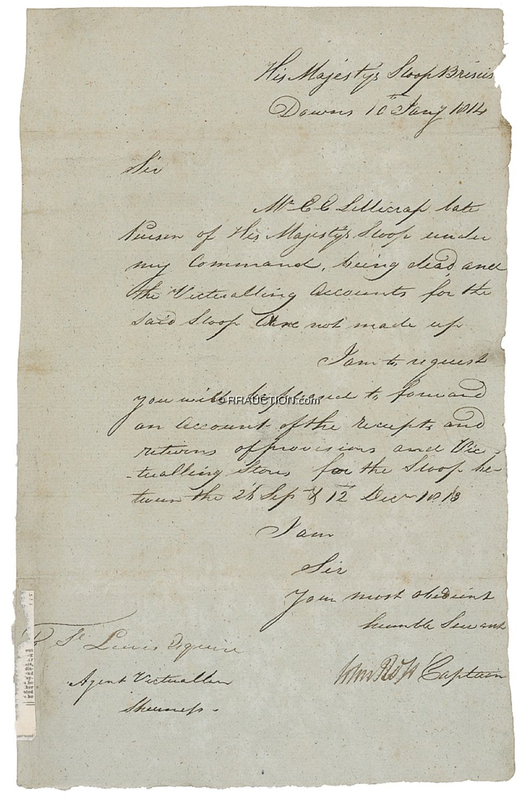 His Majesty's Sloop Briseis
Downs 10th Jany 1814
Sir
Mr C C Lillicrap late
Purser of His Majesty's Sloop under
my Command, being dead, and
the Victualling Accounts for the
said Sloop are not made up
I am to request
you will be pleased to forward
an account of the receipts and
returns of provisions and Vic-
-tualling Stores for the Sloop be-
tween the 26 Sepr & 12 Decr 1813
I am
Sir
Your most obedient
humble Servant
John Ross Captain
St Lewis Esquire
Agent Victualler
Sheerness
©RRAUCTION.com